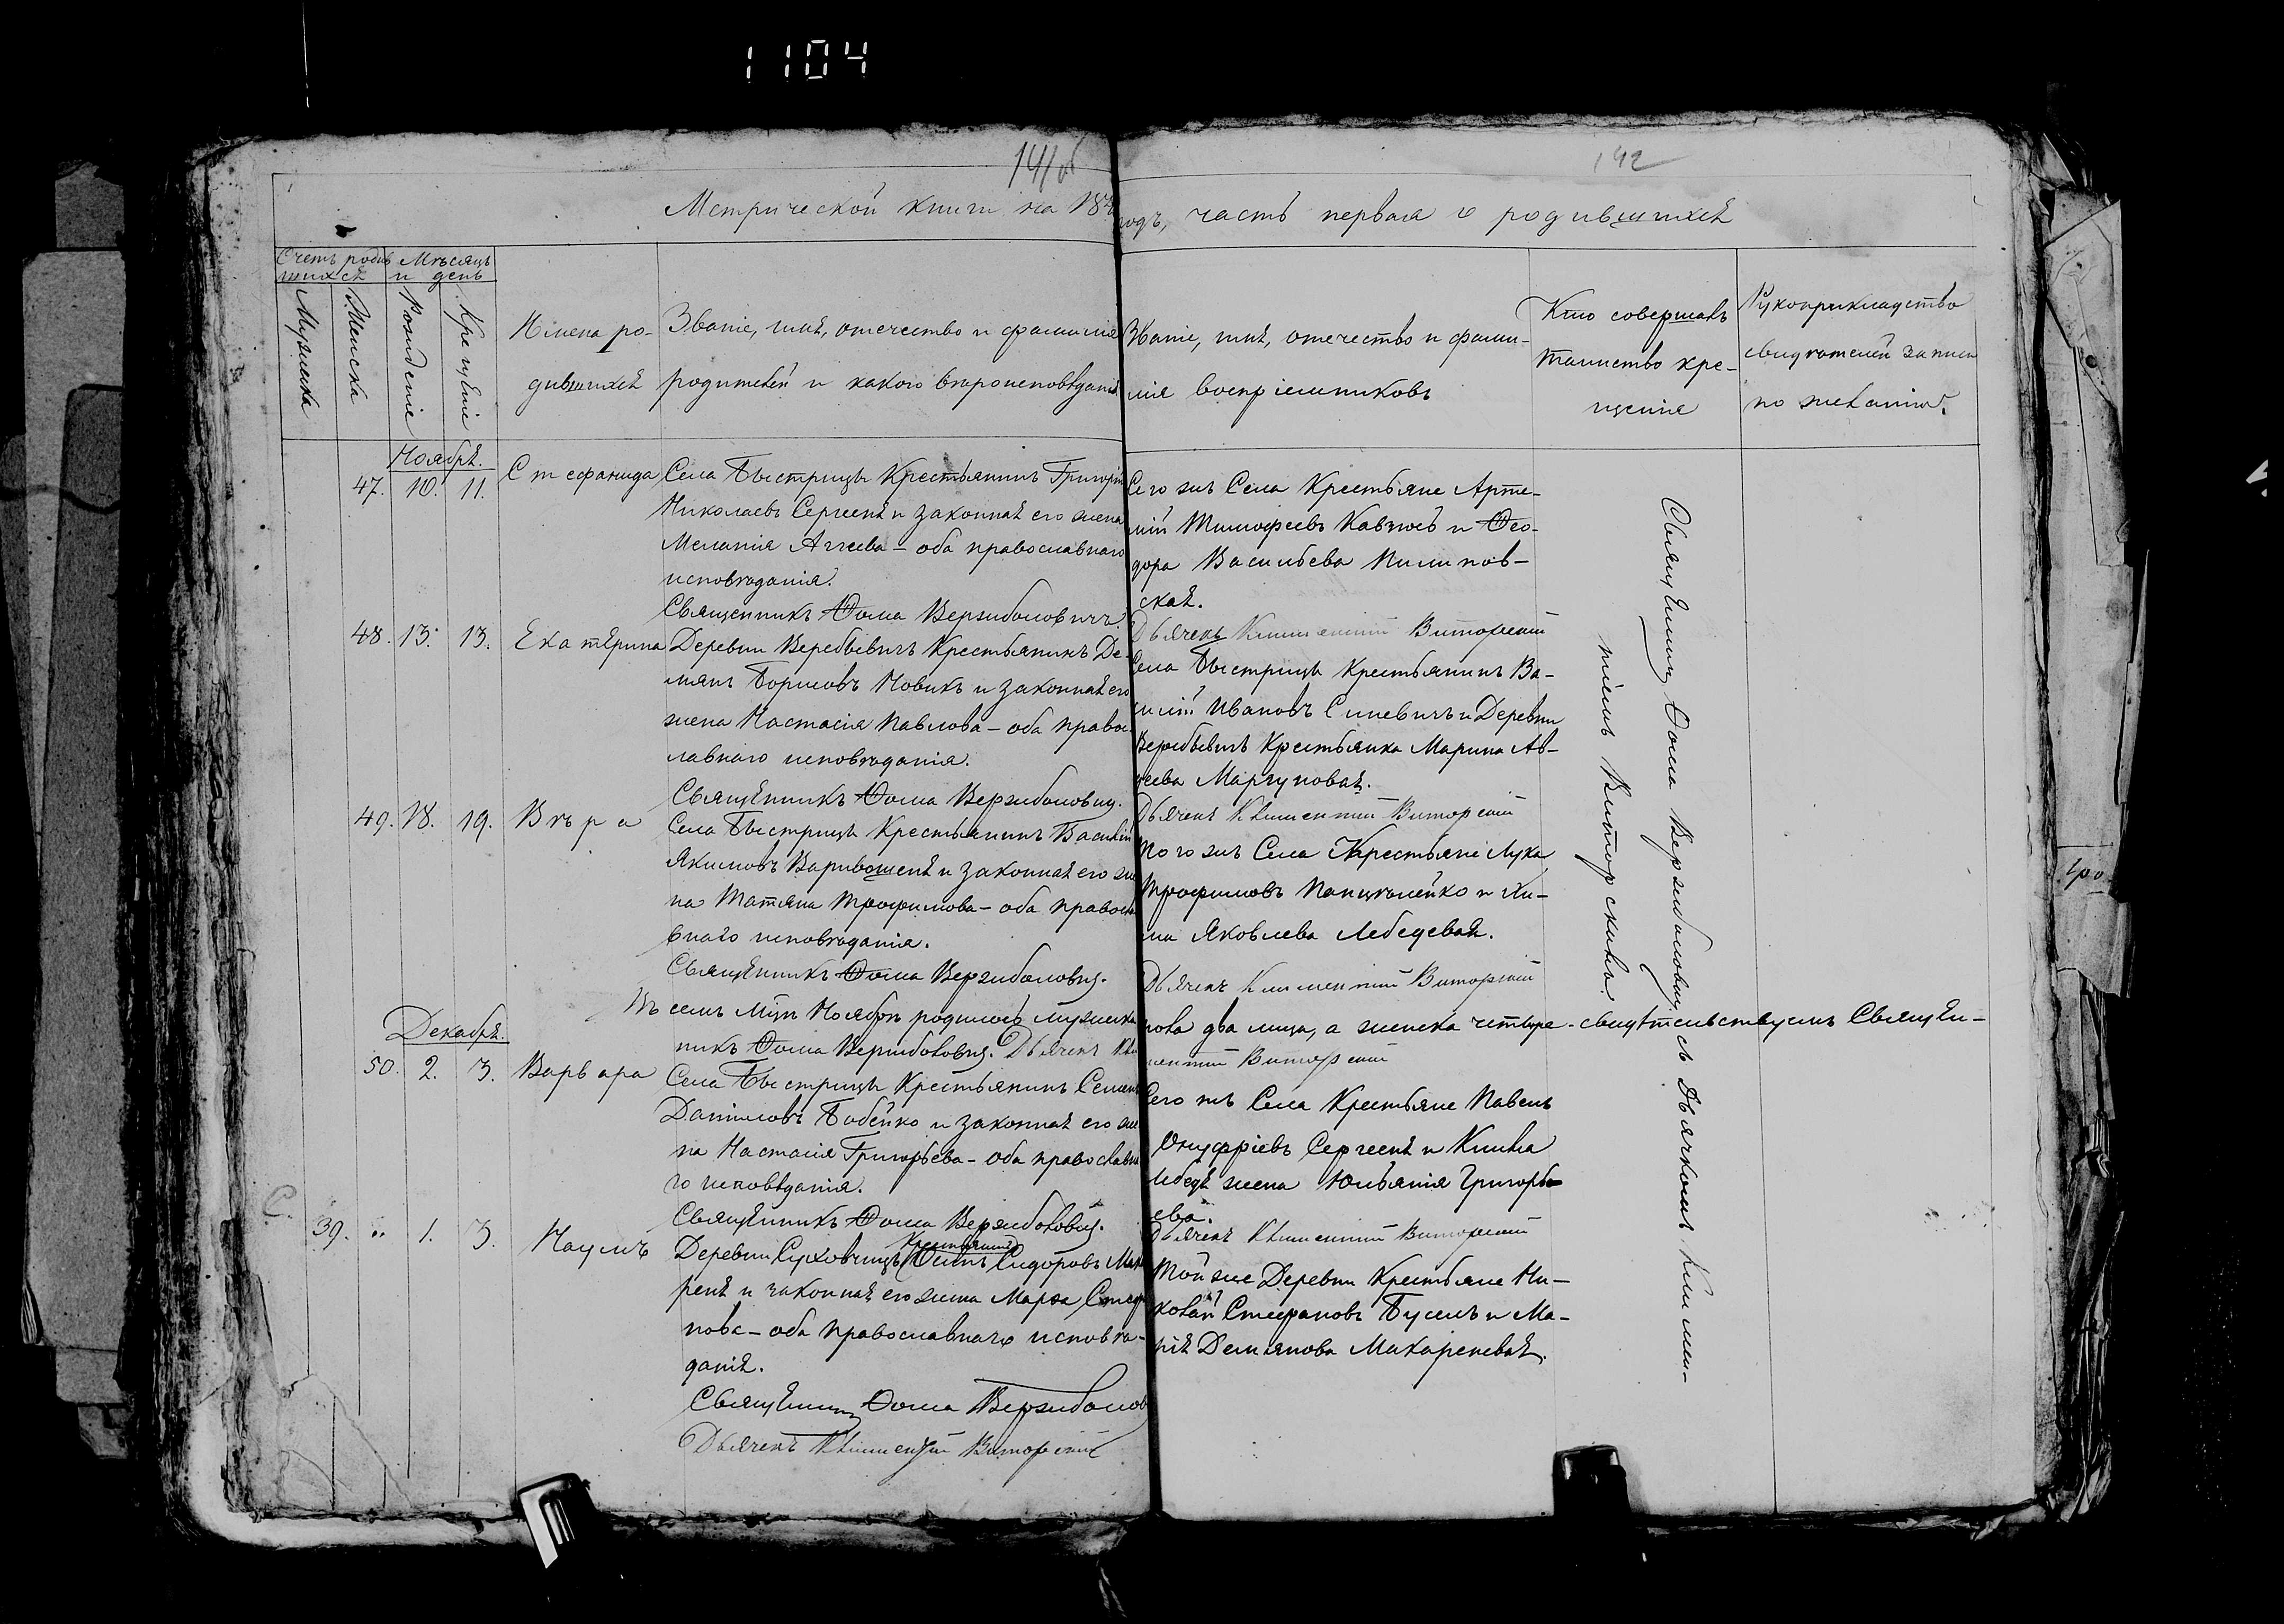 1104
141об
142
Метрической книги на 187
годъ, часть первая о родившихся
Счетъ родив
шихся
Мѣсяцъ
и день
Мужеска
Женска
Рожденіе
Крещеніе
Имена ро-
дившихся
Званіе, имя, отечество и фамилія
родителей и какого вѣроисповѣданія
Званіе, имя, отечество и фами-
лія воспріемниковъ
Кто совершалъ
таинство кре-
щенія
Рукоприкладство
свидѣтелей записи
по желанію.
Ноября.
47. 10. 11.
Стефанида
Села Быстрицы Крестьянинъ Григорій
Николаевъ Сергееня и законная его жена
Меланія Аггеева – оба православнаго
исповѣданія.
Священникъ Ѳома Вержболовичъ.
Сего же Села Крестьяне Арте-
мій Тимофеевъ и Ѳео-
дора Васильева Пилипов-
ская.
Дьячекъ Климентій Виторскій
48. 13. 13.
Екатерина
Деревни Веребьевичъ Крестьянинъ Де-
мянъ Борисовъ Новикъ и законная его
жена Настасія Павлова – оба право-
лавнаго исповѣданія.
Священникъ Ѳома Вержболовичъ.
Села Быстрицы Крестьянинъ Ва-
силій Ивановъ Синевичъ и Деревни
Веребьевичъ Крестьянка Марина Ав-
Маргуновая.
Дьячекъ Климентій Виторскій
49. 18. 19.
Вѣра
Села Быстрицы Крестьянинъ Василій
Якимовъ Варивошеня и законная его же
на Татяна Трофимова – оба правосла
внаго исповѣданія.
Священникъ Ѳома Вержболовичъ.
Того же Села Крестьяне Лука
Трофимовъ и
Яковлева Лебедевая.
Дьячекъ Климентій Виторскій
Въ семъ Мцѣ Ноябрѣ родилось мужеска
пола два лица, а женска четыре – свидѣтельствуемъ Священ-
никъ Ѳома Вержболовичъ. Дьячекъ Кли
ментій Виторскій
Декабря.
50. 2. 3.
Варвара
Села Быстрицы Крестьянинъ Семенъ
Даниловъ Бабейко и законная его же
на Настасія Григорьева – оба православна
го исповѣданія.
Священникъ Ѳома Вержболовичъ.
Сего же Села Крестьяне Павелъ
Онуфріевъ Сергееня и Клима
Лебедя жена Юльянія Григорь-
ева.
Дьячекъ Климентій Виторскій
С.
39. „ 1. 3.
Наумъ
Крестьянинъ
Деревни Суховчицъ Осипъ Сидоровъ Мака
реня и законная его жена Марѳа Стефа
нова – оба православнаго исповѣ-
данія.
Священникъ Ѳома Вержболов
Дьячекъ Климентій Виторскій
Той же Деревни Крестьяне Ни-
колай Стефановъ Бусел и Ма-
рія Демянова Макареневая.
Священникъ Ѳома Вержболовичъ съ Дьячкомъ Климен-
тіемъ Виторскимъ.
400